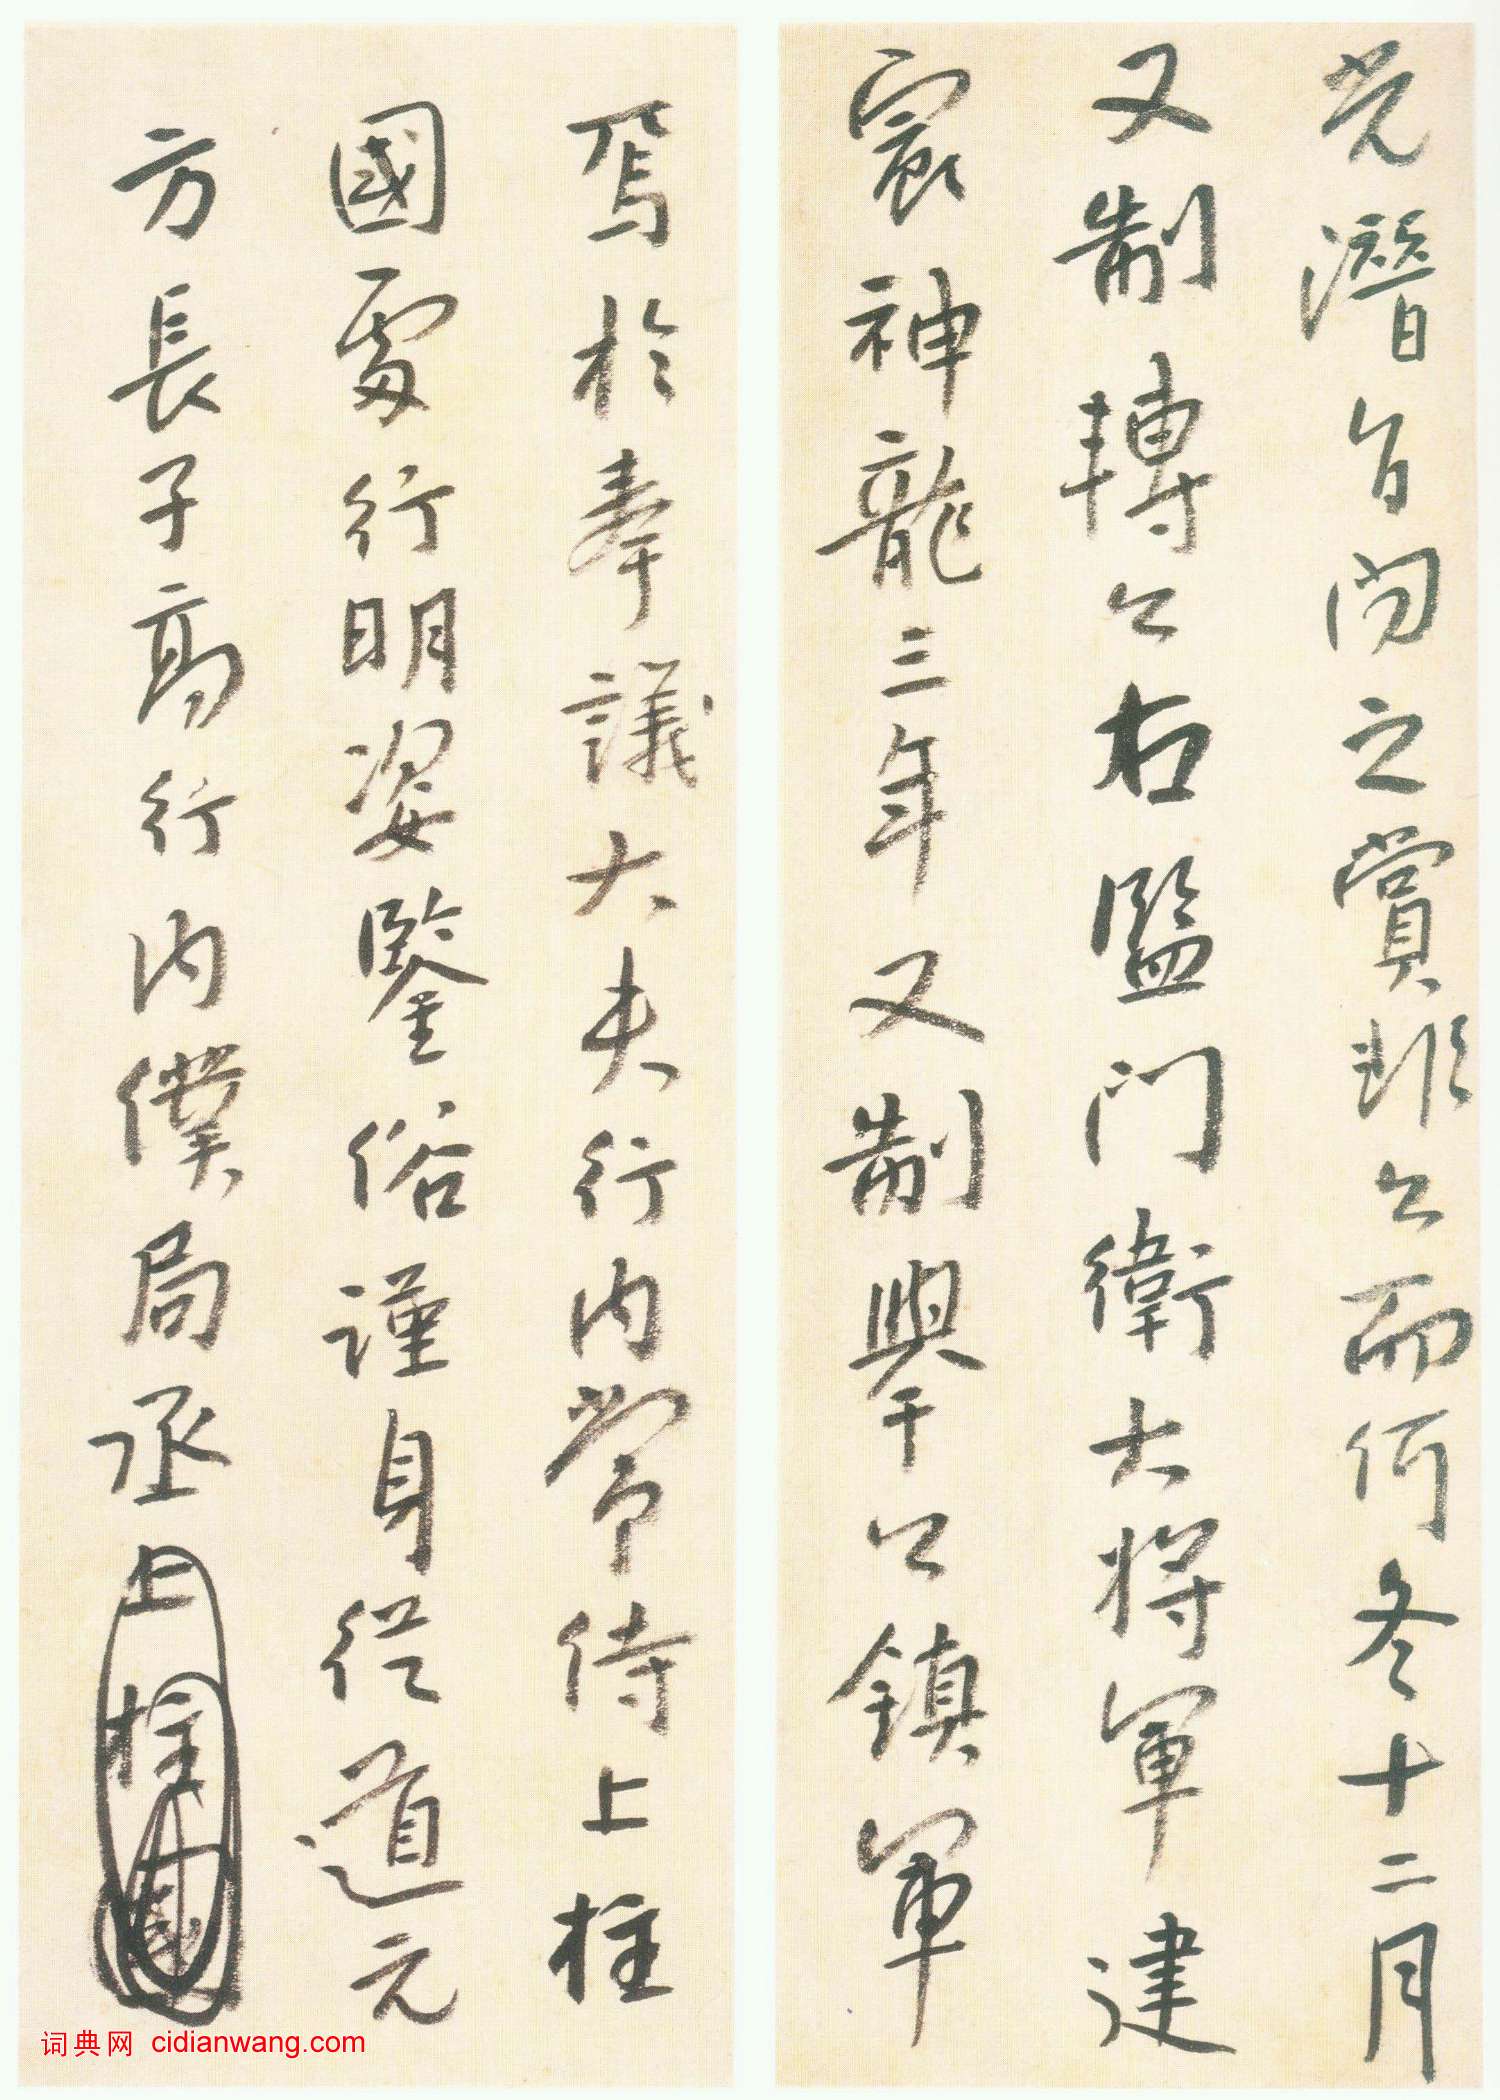 光潛旨問之賞非公而何冬十二月
又制轉公右監門衛大將軍建
寰神龍三年又制舉公鎮軍
焉於奉議大夫行内常侍上柱
國處行明姿鑒俗謹身從道元
方長子高行内僕局丞上柱
词典网 cidianwang.com